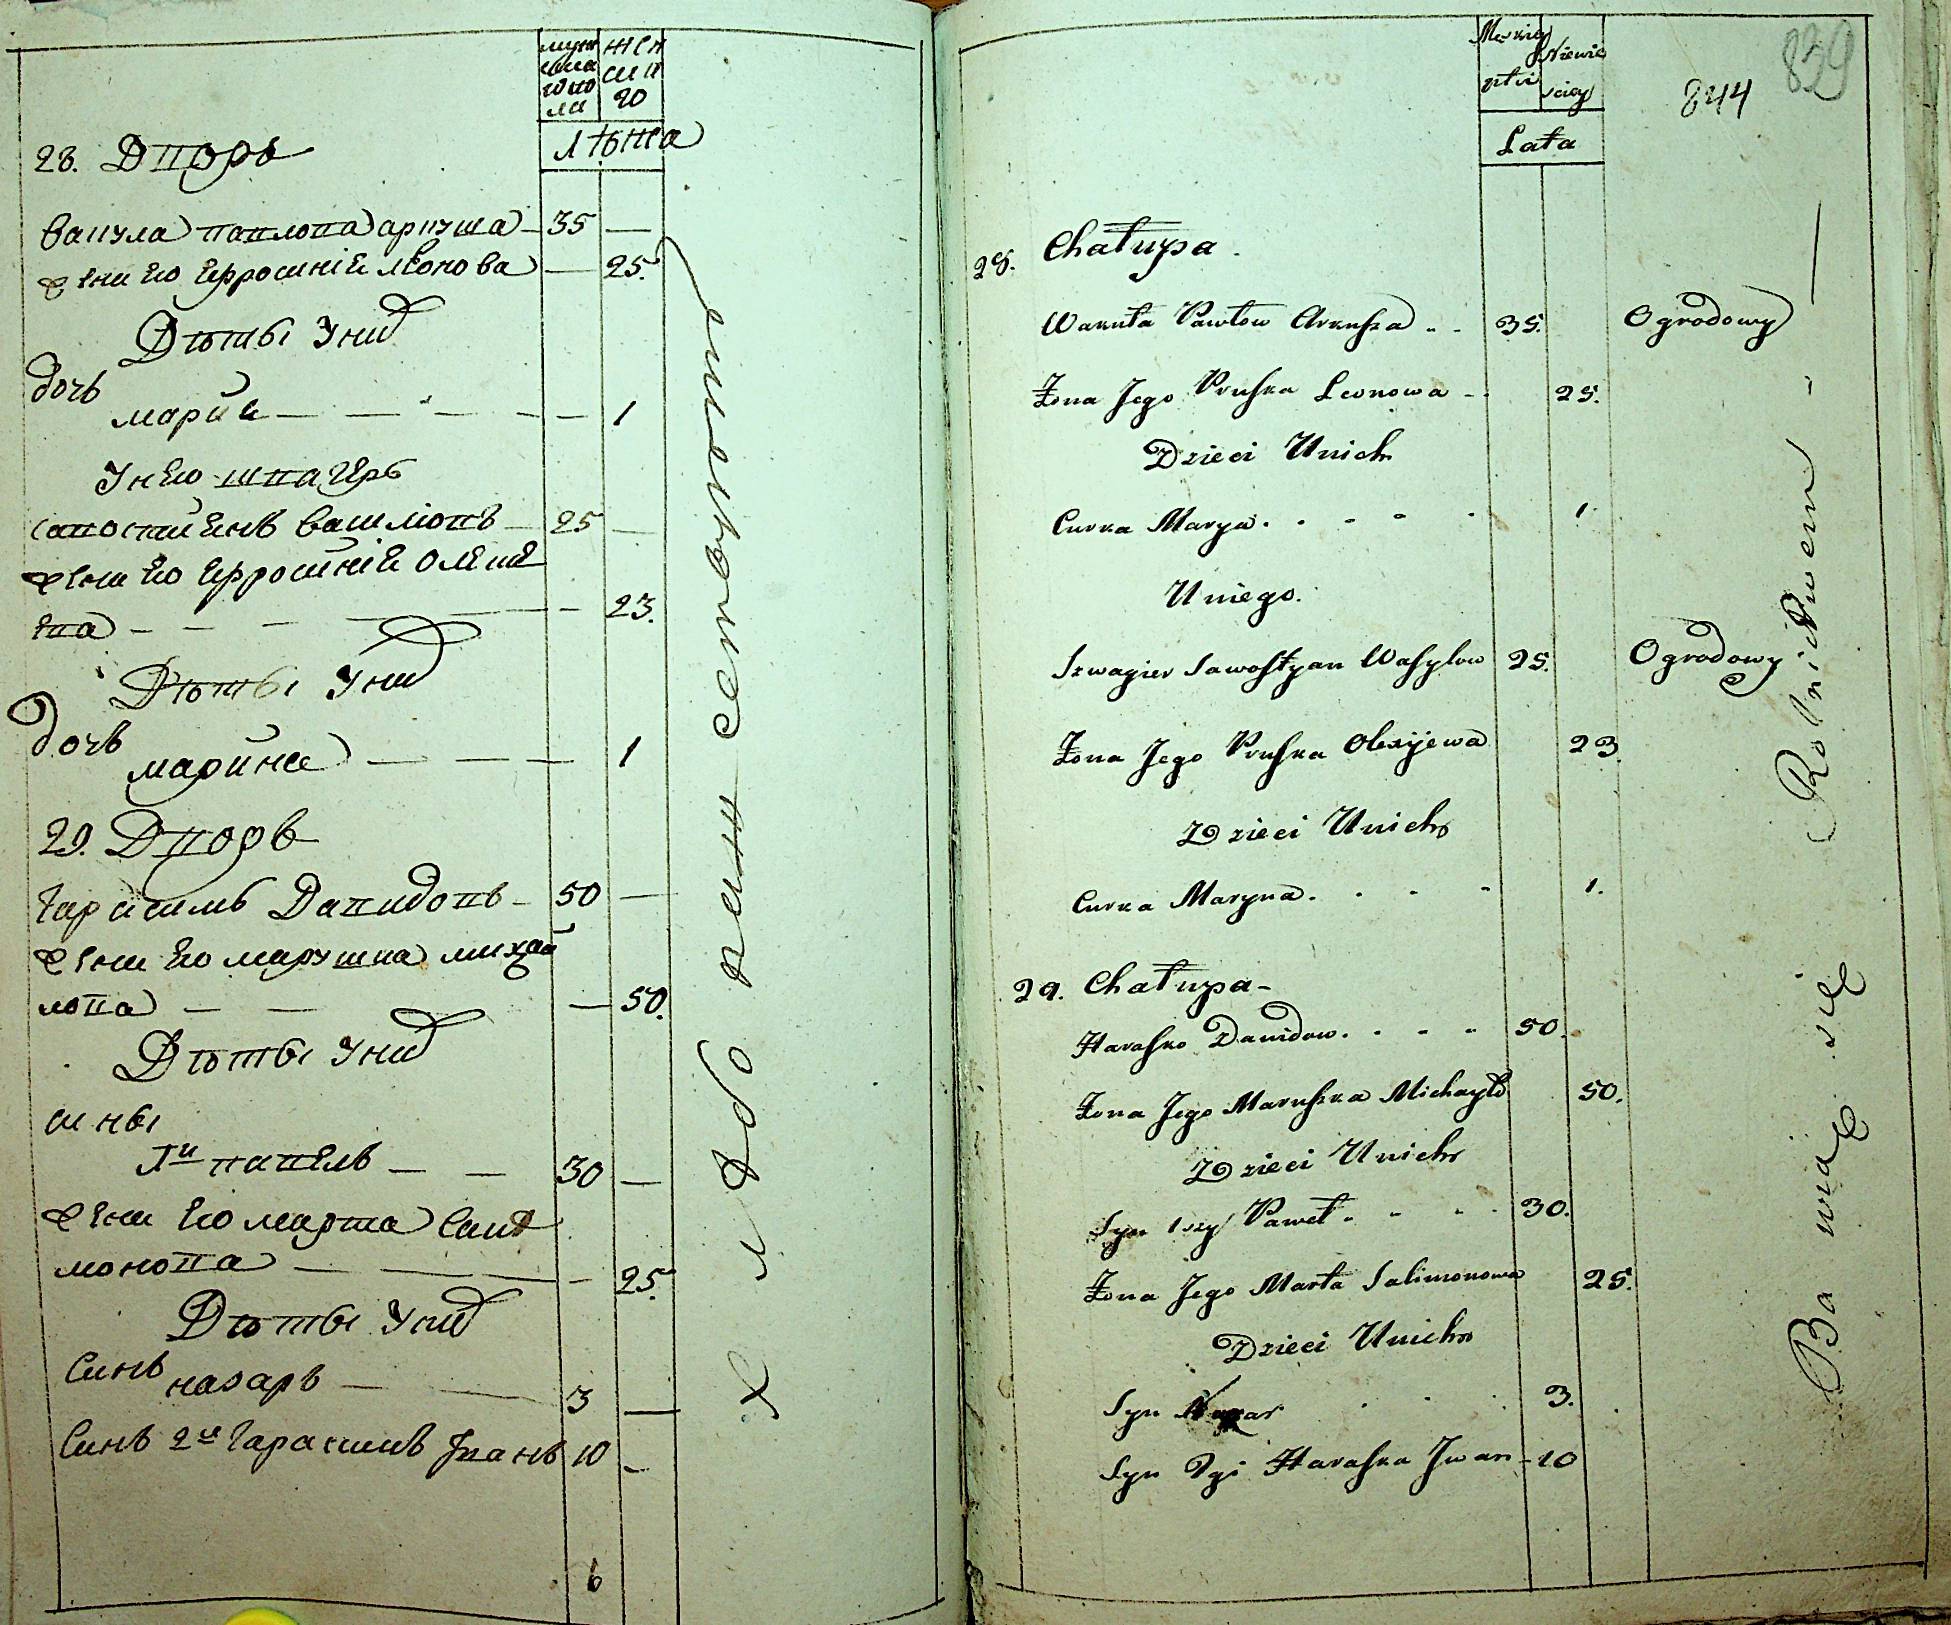 мужеска го по ла
женска го
лѣта
28. Дворъ
Вакула Павлова Аркуша — 35 —
Жена Его Ефросинiя Леонова — 25.
Дѣты У них
дочь
Мария — — — — — 1
У него Швагеръ
Савостиянъ Васильовъ — 25 —
Жена Его Ефросинiя Олексѣ
ева — — — — — 23.
Дѣты У них
дочь
Марина — — — — 1
29. Дворъ
Гарасимъ Давидовъ — 50 —
Жена Его Марушка Михай
лова — — — 50.
Дѣты У них
Сины
1й Павелъ — — 30 —
Жена Его Марта Сили
монова — — — 25.
Дѣты У них
Синъ
Назаръ — — 3 —
Синъ 2й Гарасимовъ Иванъ 10 —
6
Хлѣбопашеством
829
844
Męzkiey płci
Niewieściey
Lata
28. Chałupa.
Wakuła Pawłow Arkusza - - 35. Ogrodowy —
Żona Jego Pruska Leonowa - - 25.
Dzieci Unich
Curka Marya . . - - - 1.
Uniego.
Szwagier Sawostyan Wasylow 25. Ogrodowy
Żona Jego Pruska Olexijewa 23.
Dzieci Unich
Curka Maryna . . - - 1.
29. Chałupa -
Harasko Dawidow . - - - 50.
Żona Jego Maruszka Michayło 50.
Dzieci Unich
Syn 1szy Paweł . - - - 30.
Żona Jego Marta Salimonowa 25.
Dzieci Unich
Syn Nazar . . . 3.
Syn 2gi Haraska Jwan - 10
Bawią się Rolnictwem